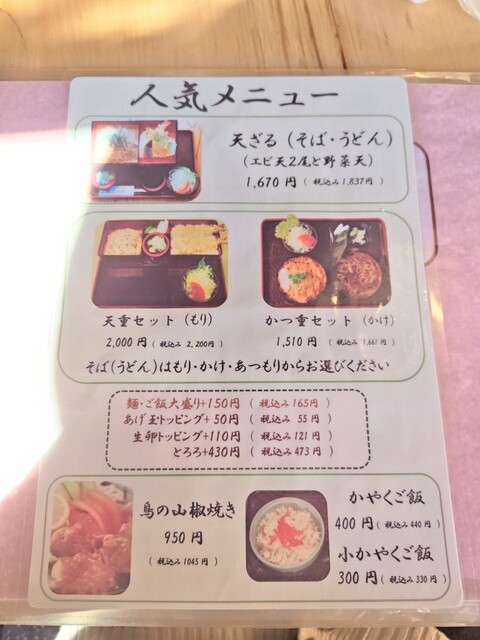 人気メニュー
天ざる(そば・うどん)
(エビ天2尾と野菜天)
1,670円(税込み1,837円)
天重セット(もり)
2,000円(税込み2,200円)
かつ重セット(かけ)
1,510円(税込み1,661円)
そば(うどん)はもり・かけ・あつもりからお選びください
麺・ご飯大盛り+150円(税込み165円)
あげ玉トッピング+50円(税込み55円)
生卵トッピング+110円(税込み121円)
とろろ+430円(税込み473円)
鳥の山椒焼き
950円
(税込み1045円)
かやくご飯
400円(税込み440円)
小かやくご飯
300円(税込み330円)